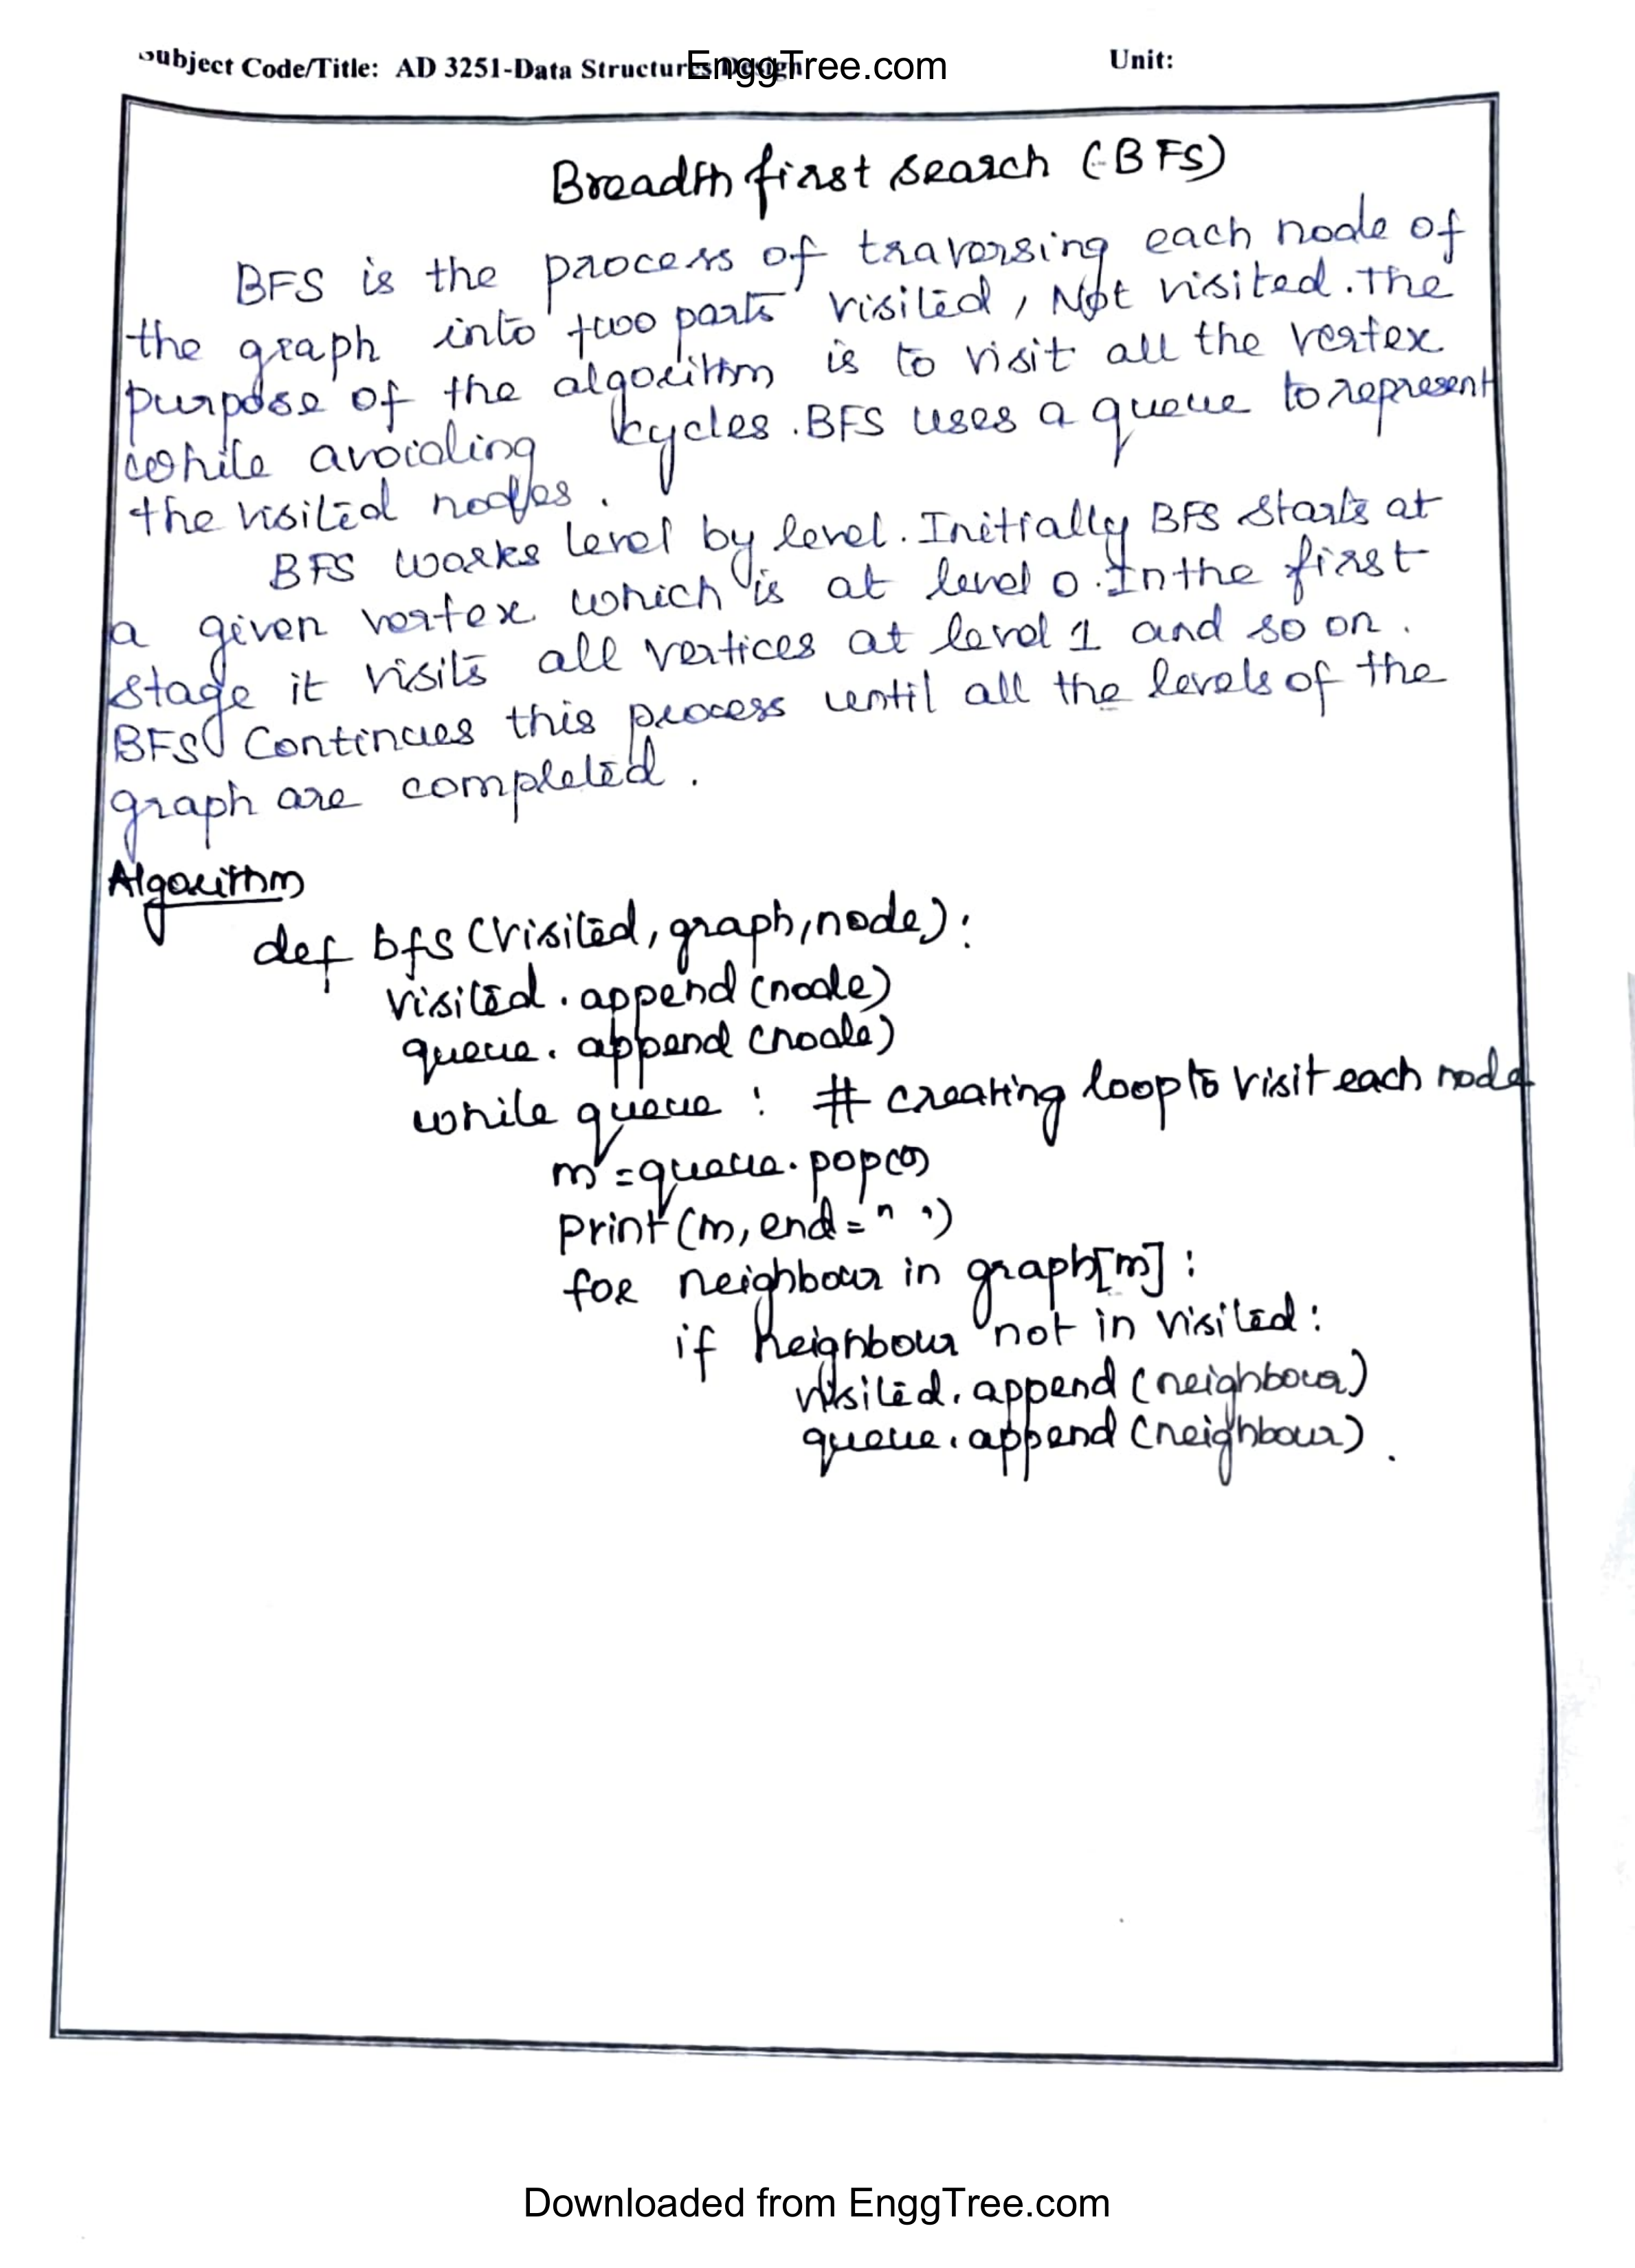 Subject Code/Title: AD 3251-Data Structures Design EnggTree.com Unit:
Breadth first search (BFS)
BFS is the process of traversing each node of
the graph into two parts visited, Not visited. The
purpose of the algorithm is to visit all the vertex
while avoiding cycles. BFS uses a queue to represent
the visited nodes.
BFS works level by level. Initially BFS starts at
a given vertex which is at level 0. In the first
stage it visits all vertices at level 1 and so on.
BFS Continues this process until all the levels of the
graph are completed.
Algorithm
def bfs (visited, graph, node):
visited. append (node)
queue. append (node)
while queue : # creating loop to visit each node
m = queue. pop(0)
print (m, end = " ")
for neighbour in graph[m] :
if neighbour not in visited:
visited. append (neighbour)
queue. append (neighbour).
Downloaded from EnggTree.com